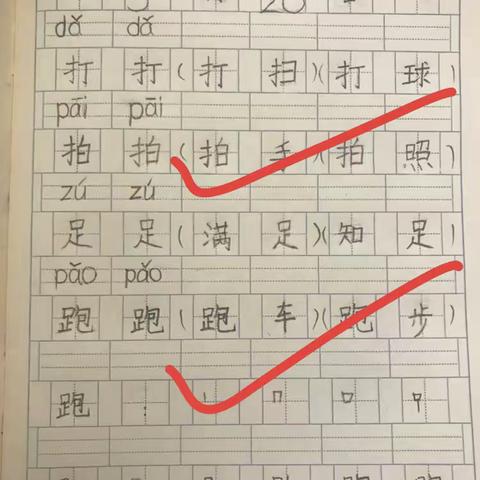 dǎ dǎ
打 打 (打 扫)(打 球)
pāi pāi
拍 拍 (拍 手)(拍 照)
zú zú
足 足 (满 足)(知 足)
pǎo pǎo
跑 跑 (跑 车)(跑 步)
跑